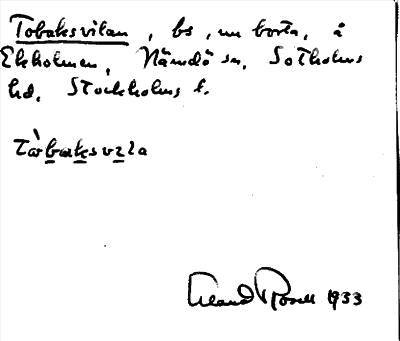 Tobaksvilan, bs, nu borta, å
Ekholmen, Nämdö sn, Sotholms
hd, Stockholms l.
Tòbaksvila
Erland Rosell 1933